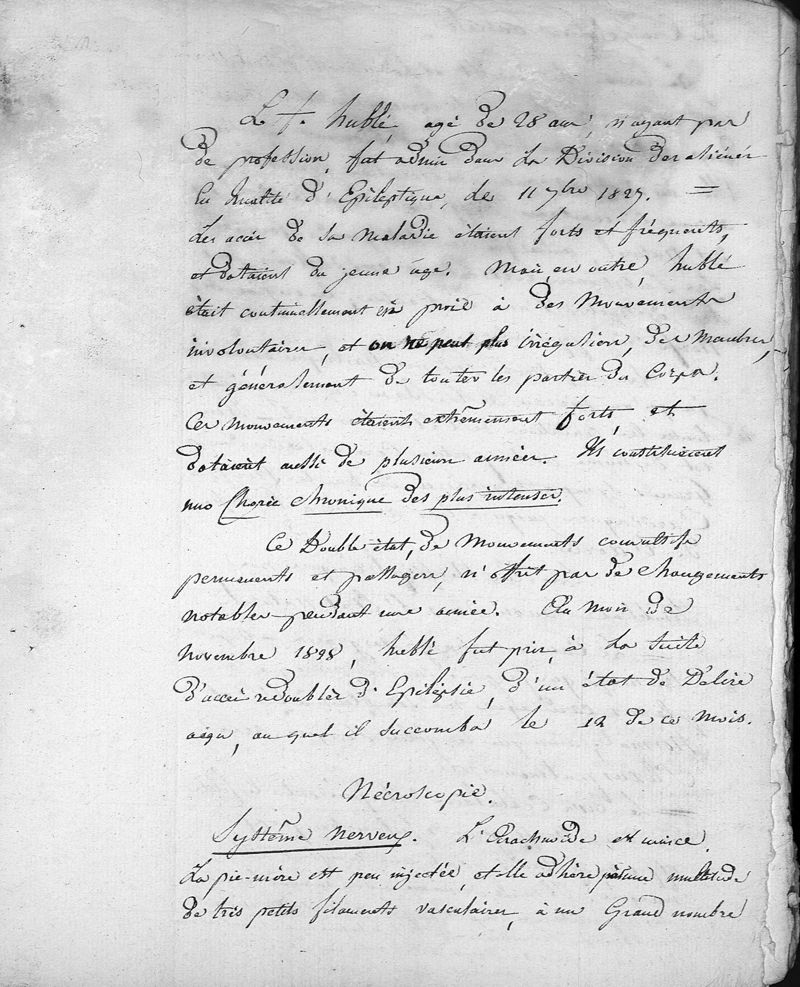 Le f. hublé, agé de 28 ans, n'ayant pas
de profession, fut admis dans la Division des aliénés
En qualité d'Epileptique, le 11 7bre 1827. =
Les accès de sa maladie étaient forts et fréquents,
et dataient du jeune âge. Mais, en outre, hublé
était continuellement en proie à des mouvements
involontaires, et on ne peut plus irréguliers, des membres,
et généralement de toutes les parties du corps.
Ces mouvements étaient extrêmement forts, et
dataient aussi de plusieurs années. Ils constituaient
une Chorée chronique des plus intenses.
Ce Double état, de mouvements convulsifs
permanents et passagers, n'offrit pas de changements
notables pendant une année. Au mois de
novembre 1828, hublé fut pris, à la suite
d'accès redoublés d'Epilepsie, d'un état de Délire
aigu, auquel il succomba le 12 de ce mois.
Nécroscopie.
Système nerveux. L'Arachnoïde est mince.
La pie-mère est peu injectée, et elle adhère par une multitude
de très petits filaments vasculaires, à un Grand nombre